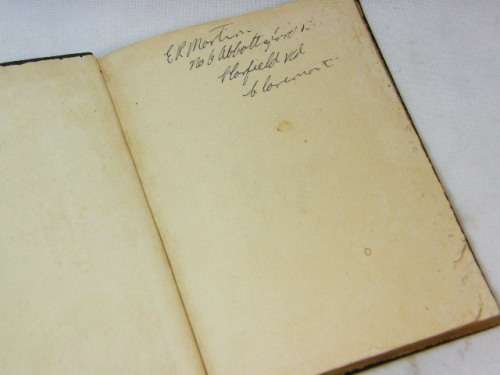 E R Morton
No 6 Abbottsford
Harfield Rd
Claremont.